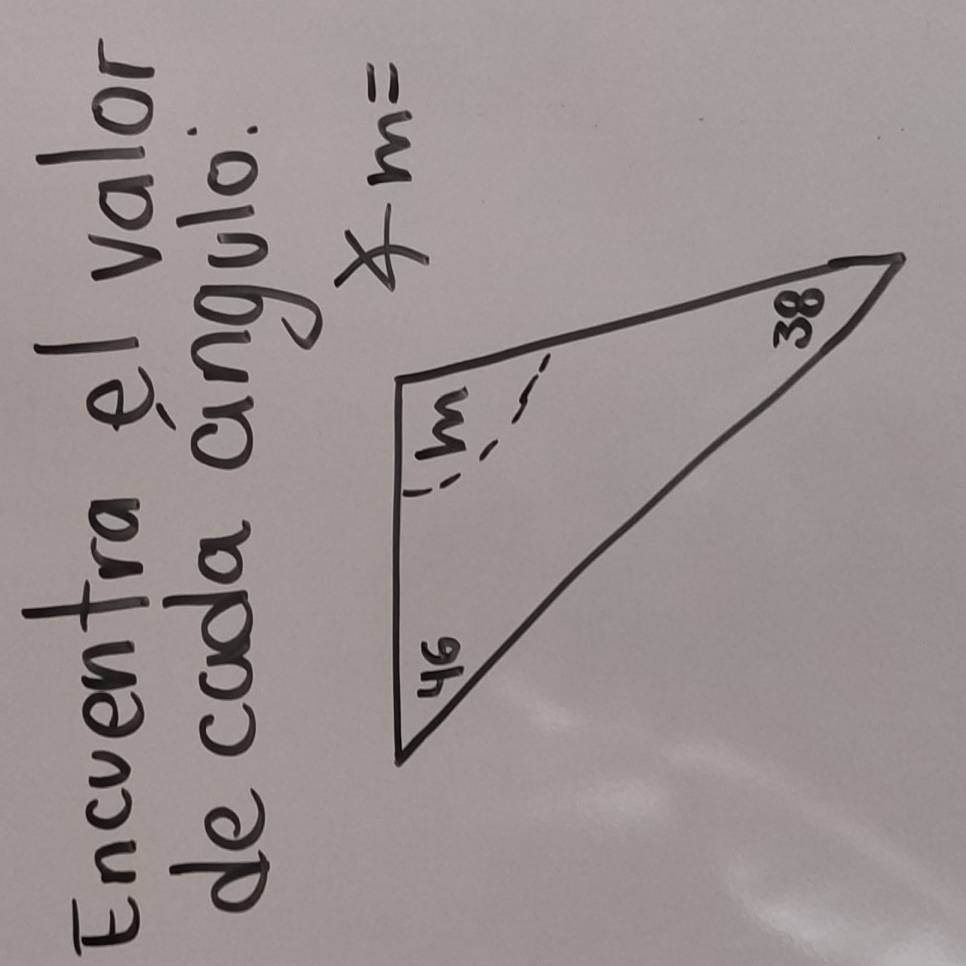 Encuentra el valor
de cada ángulo:
∡ m=
46
m
38